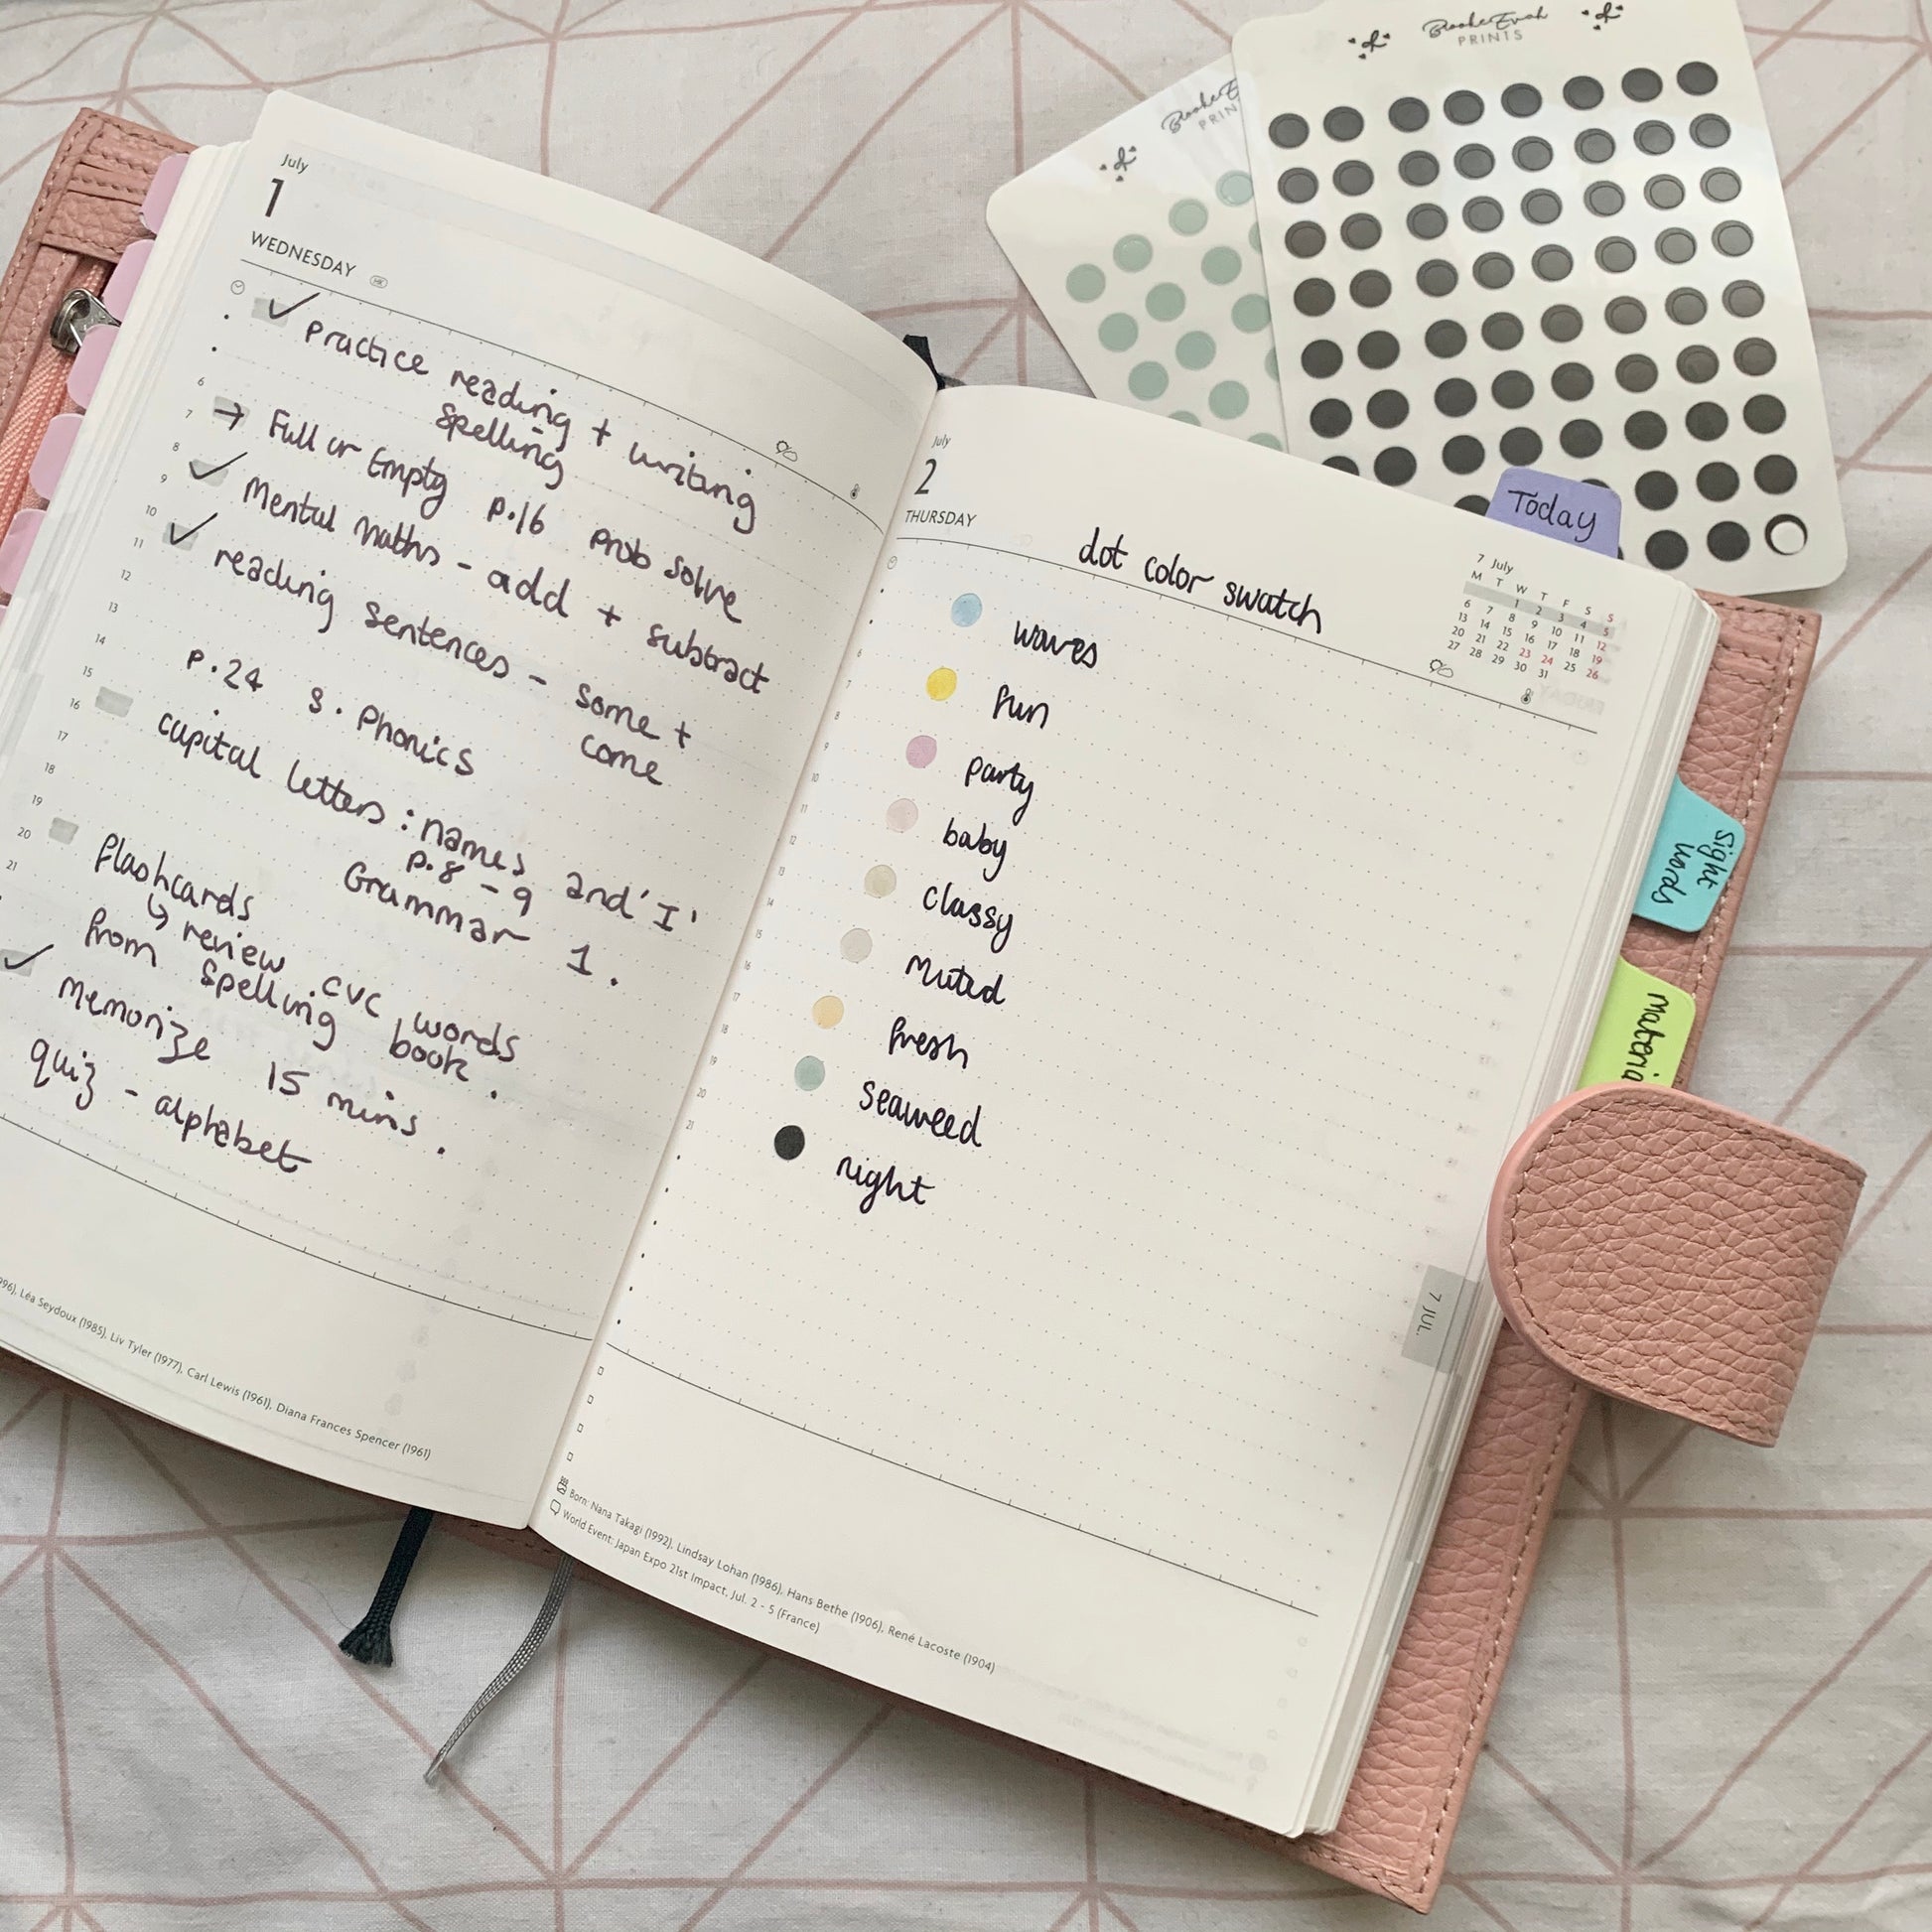 July
1
WEDNESDAY
HK
practice reading + writing
spelling
6
→ Full or Empty p.16 prob solve
7
8
Mental maths - add + subtract
9
10
reading sentences - some +
come
11
12
13
p.24 S. Phonics
14
15
capital letters : names and 'I'
p.8 - 9
Grammar 1.
16
17
18
19
20
flashcards
↳ review cvc words
from spelling book.
21
Memorize 15 mins.
quiz - alphabet
996), Léa Seydoux (1985), Liv Tyler (1977), Carl Lewis (1961), Diana Frances Spencer (1961)
July
2
THURSDAY
dot color swatch
7 July
M T W T F S S
1 2 3 4 5
6 7 8 9 10 11 12
13 14 15 16 17 18 19
20 21 22 23 24 25 26
27 28 29 30 31
waves
fun
party
baby
classy
Muted
fresh
Seaweed
night
6
7
8
9
10
11
12
13
14
15
16
17
18
19
20
21
7 JUL.
Born: Nana Takagi (1992), Lindsay Lohan (1986), Hans Bethe (1906), René Lacoste (1904)
World Event: Japan Expo 21st Impact, Jul. 2 - 5 (France)
Today
Sight
Words
Materia
PRINTS
PRIN